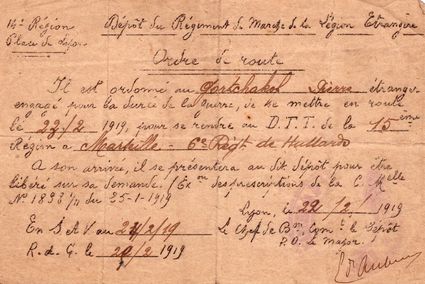 14e Région Dépôt du Régiment de Marche de la Légion Etrangère
Place de Lyon
Ordre de route
Il est ordonné au Gortchakof Pierre étranger
engagé pour la durée de la guerre, de se mettre en route
le 22/2 1919, pour se rendre au D.T.T. de la 15ème
Région à Marseille - 6e Régt de Hussards
A son arrivée, il se présentera au dit dépôt pour être
libéré sur sa demande. (Exon des prescriptions de la C. Melle
No 1893 1/11 du 25-1-1919
Lyon, le 22/2/1919
En S et V au 24/2/19 Le Chef de Bon, Comt le Dépôt
R. de G. le 20/2 1919 P.O. Le Major.